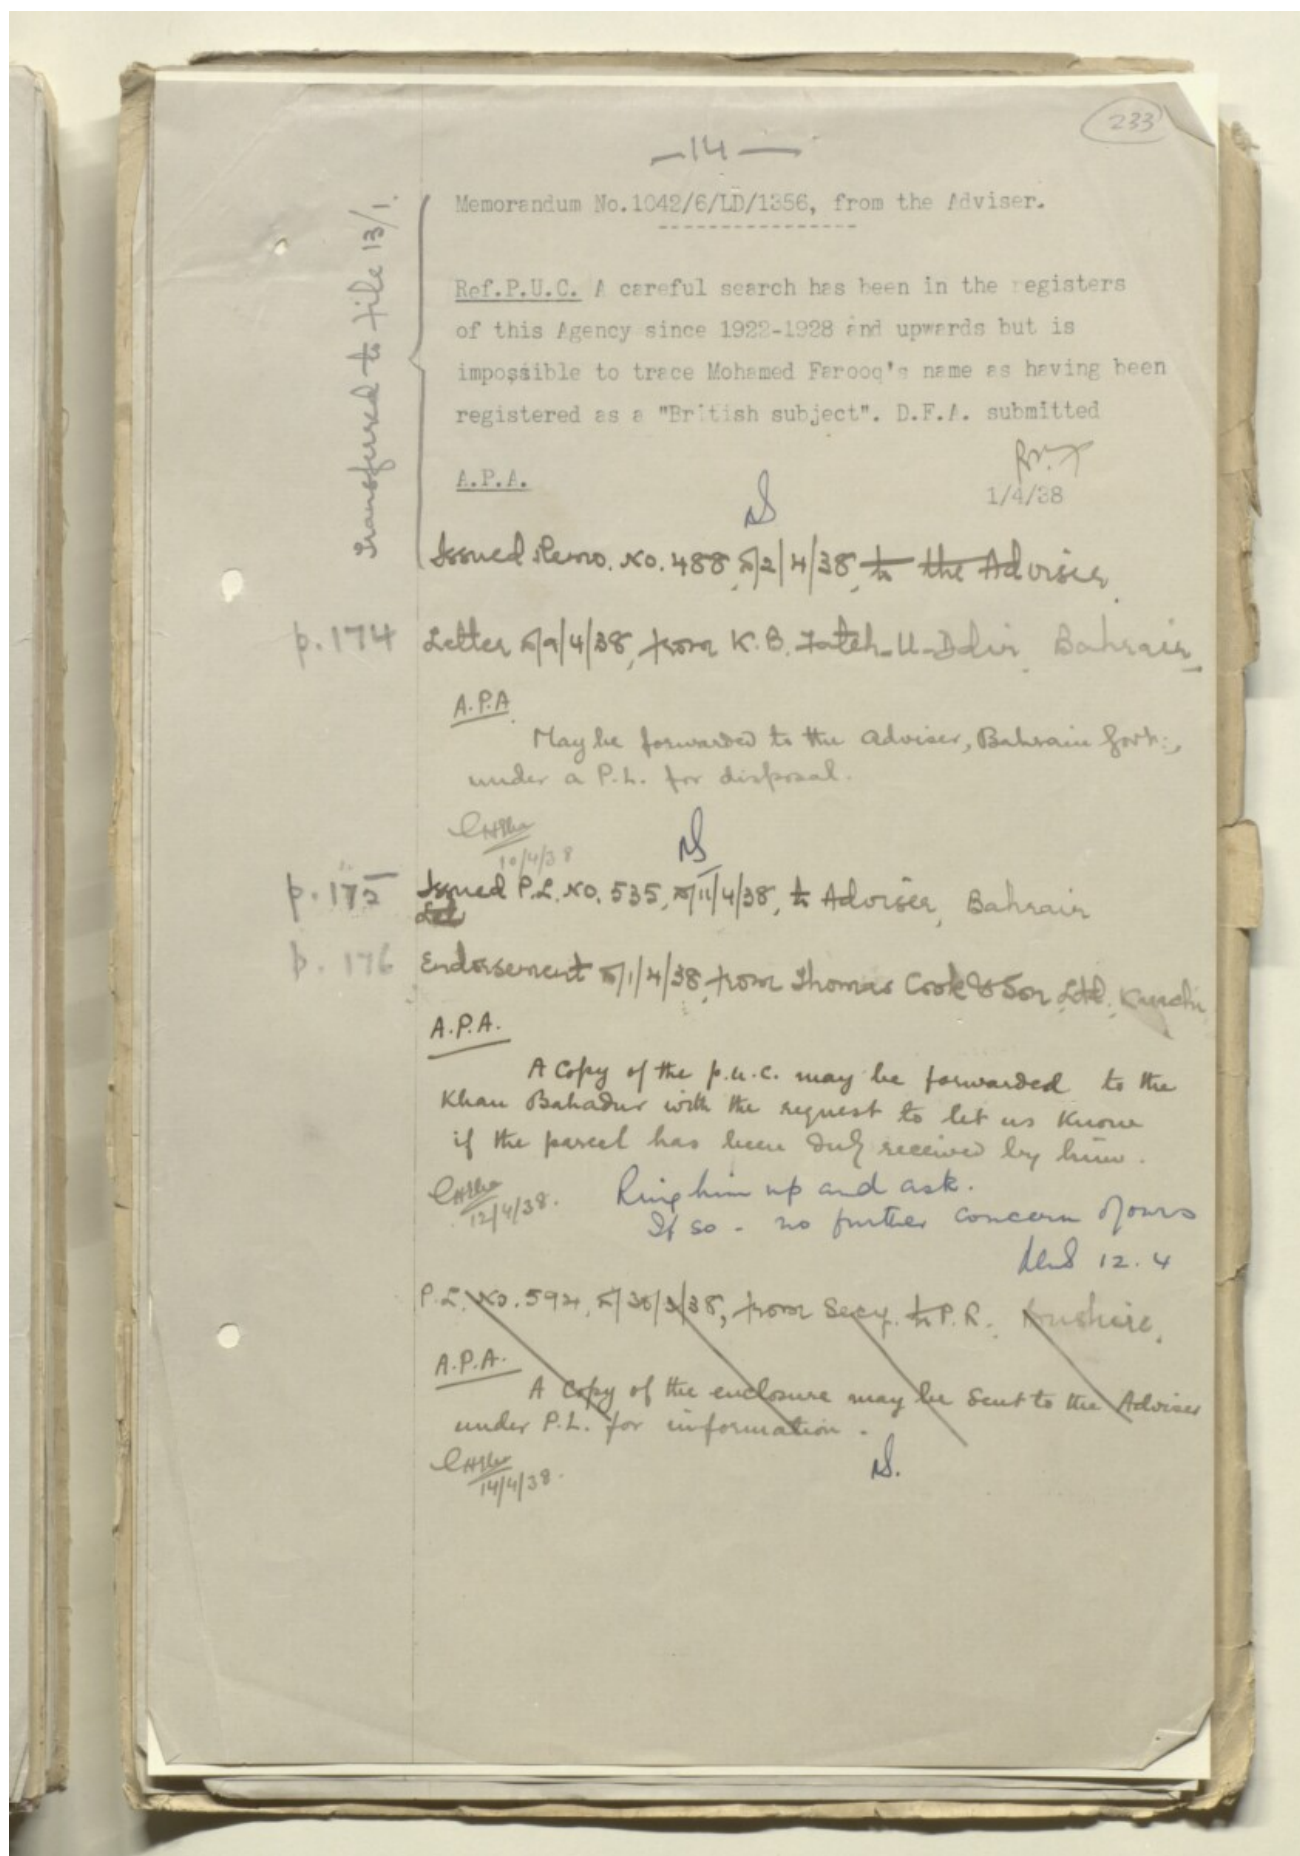 233
—14—
Transferred to file 13/1.
Memorandum No.1042/6/LD/1356, from the Adviser.
Ref.P.U.C. A careful search has been in the registers
of this Agency since 1922-1928 and upwards but is
impossible to trace Mohamed Farooq's name as having been
registered as a "British subject". D.F.A. submitted
A.P.A.
1/4/38
Issued Memo. No. 488, d/2/4/38, to the Adviser.
p.174 Letter d/9/4/38, from K.B. Fateh-U-Ddin, Bahrain.
A.P.A.
May be forwarded to the Adviser, Bahrain Govt:,
under a P.L. for disposal.
10/4/38
p.175 Issued P.L. No. 535, d/11/4/38, to Adviser, Bahrain
p.176 Endorsement d/1/4/38, from Thomas Cook & Son Ltd.
A.P.A.
A copy of the p.u.c. may be forwarded to the
Khan Bahadur with the request to let us know
if the parcel has been duly received by him.
12/4/38.
Ring him up and ask.
If so - no further concern of ours
12.4
P.L. No. 594, d/30/3/38, from Secy. to P.R. Bushire.
A.P.A.
A copy of the enclosure may be sent to the Adviser
under P.L. for information.
14/4/38.